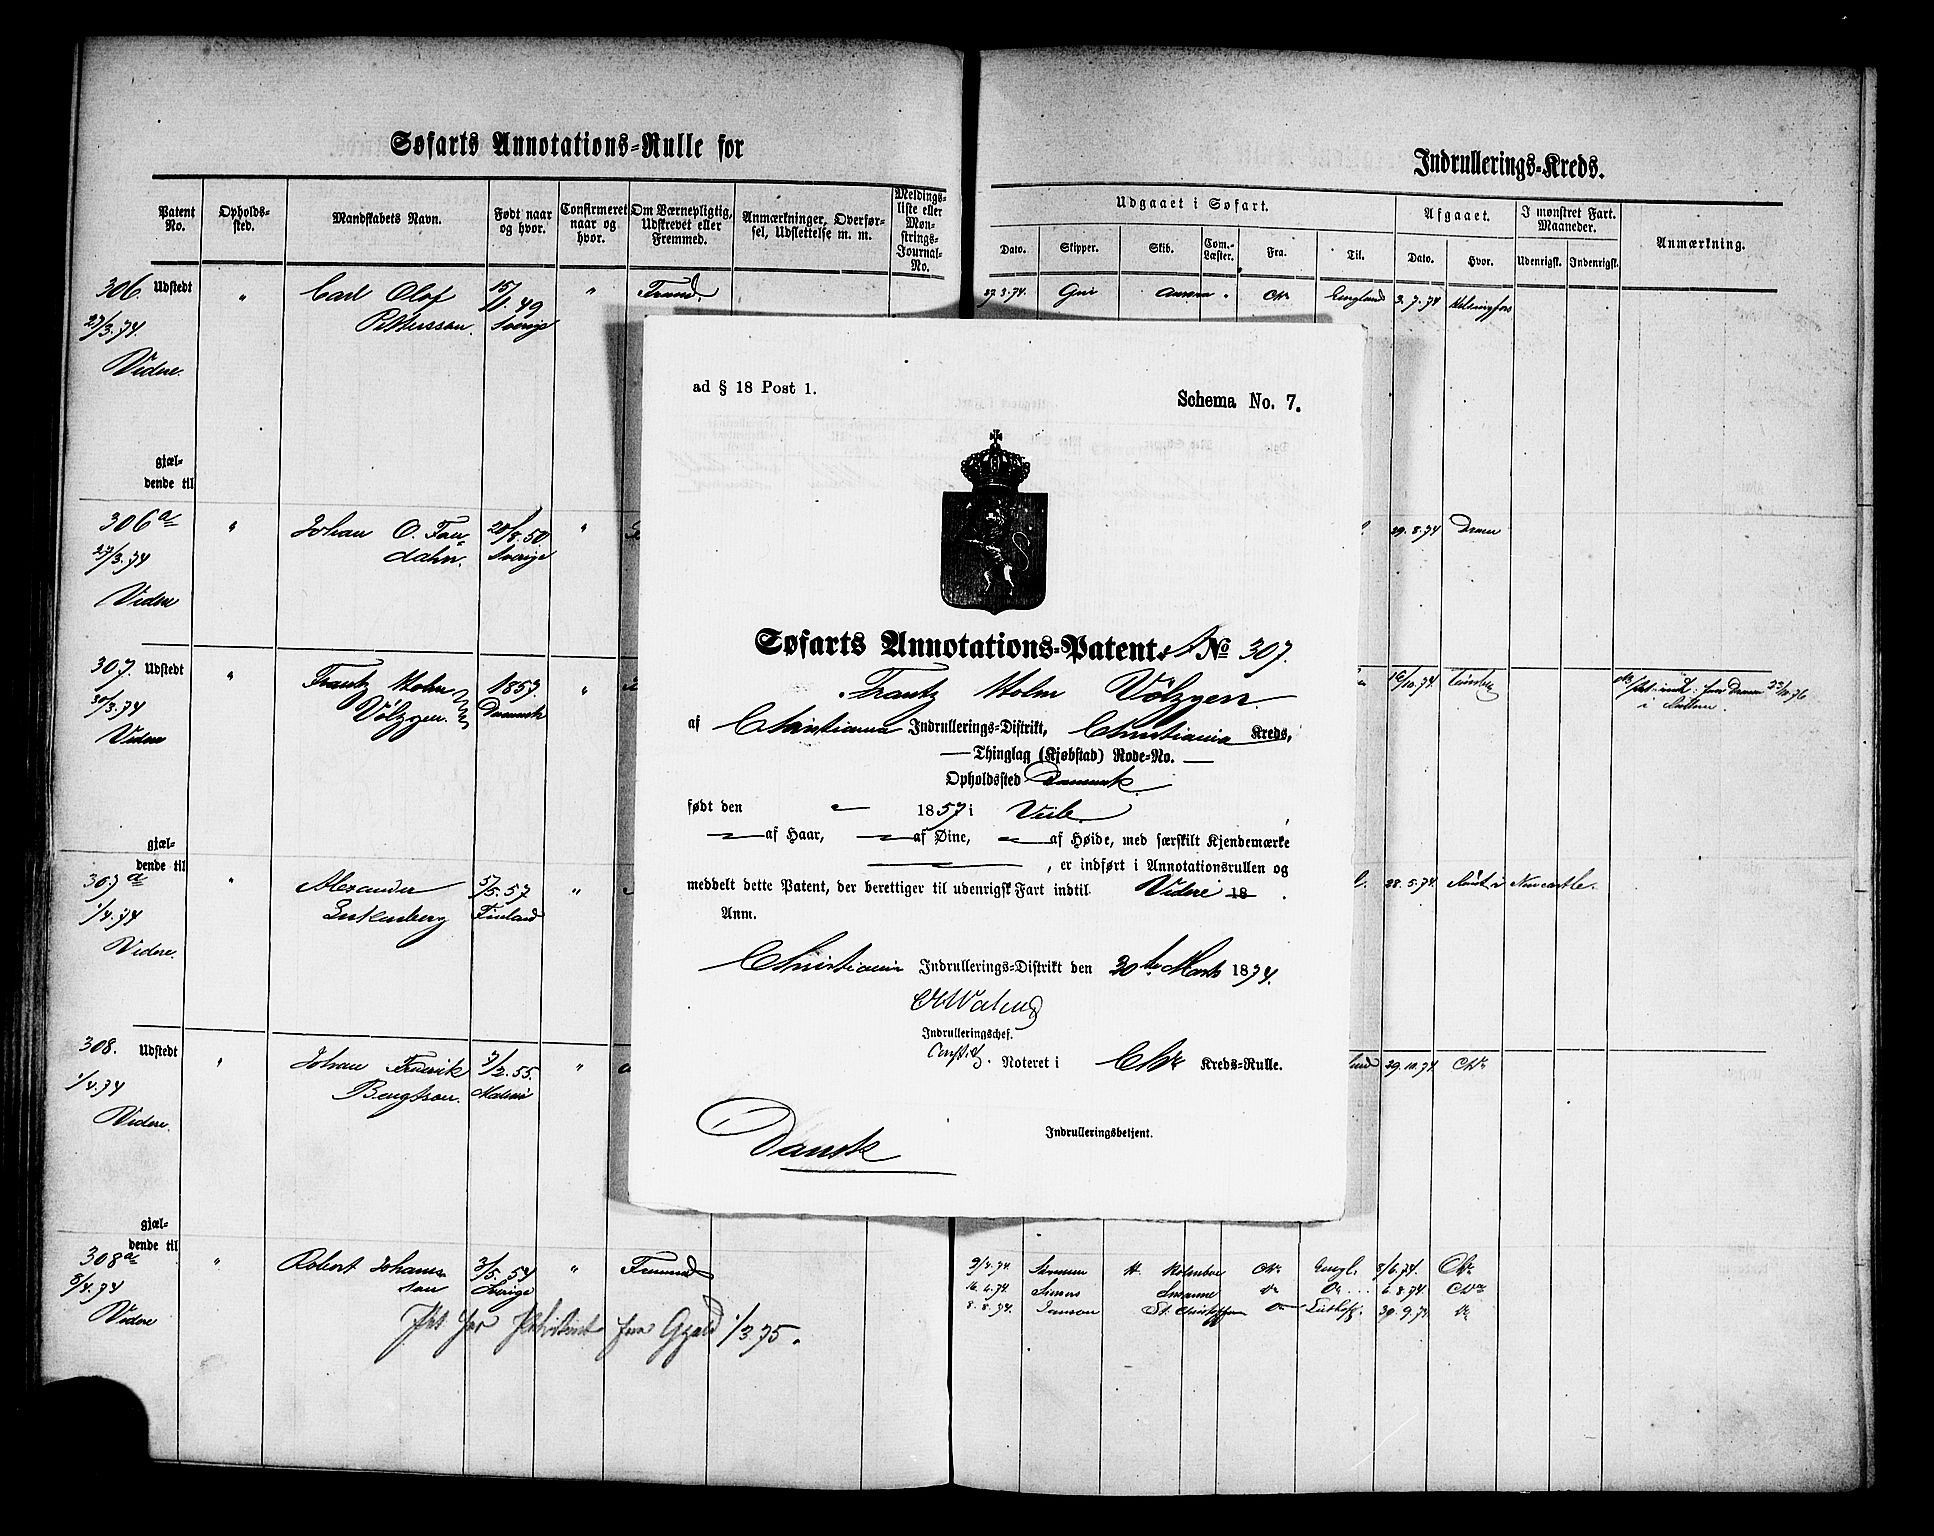 Søfarts Annotations-Rulle for
Patent No.
Opholds-sted.
Mandskabets Navn.
Født naar og hvor.
Confirmeret naar og hvor.
Om Værnepligtig, Udskrevet eller Fremmed.
Anmærkninger, Overførsel, Udslettelse m. m.
Meldingsliste eller Mønstrings-Journal-No.
306. Udstedt " Carl Olof 15/11 49 " Fremd.
27/3.74. Pettersson. Sverige
Videre.
gjæl-
dende til
306a " Johan O. Fan- 28/8.50 "
27/3.74 dahn. Sverige
Videre
307. Udstedt " Frantz Holm 1857. "
30/3.74 Völzgen. Danmark
Videre
gjæl-
dende til
307a " Alexander 5/5.57 "
1/4.74 Finland
Videre.
308. Udstedt " Johan Fredrik 7/2.55. "
1/4.74 Bengtson. Malmö
Videre.
gjæl-
dende til
308a " Robert Johans- 3/5.54 " Fremmed
8/4.74 son Sverige
Videre
1/3.75.
ad § 18 Post 1.
Schema No. 7.
Søfarts Annotations-Patent. No 307.
Frantz Holm Völzgen
af Christiania Indrullerings-Distrikt, Christiania Kreds,
Thinglag (Kjøbstad) Rode-No.
Opholdssted Danmark
født den 1857 i Veile
af Haar, af Øine, af Høide, med særskilt Kjendemærke
, er indført i Annotationsrullen og
meddelt dette Patent, der berettiger til udenrigsk Fart indtil Videre 18 .
Anm.
Christiania Indrullerings-Distrikt den 30te Marts 1874.
Indrulleringschef.
Noteret i Chr Kreds-Rulle.
Indrulleringsbetjent.
Dansk
Indrullerings-Kreds.
Udgaaet i Søfart.
Afgaaet.
I mønstret Fart. Maaneder.
Anmærkning.
Dato.
Skipper.
Skib.
Com.-Læster.
Fra.
Til.
Dato.
Hvor.
Udenrigsk.
Indenrigsk.
27.3.74. Aurora " Chr England 3.7.74 Helsingfors
29.8.74 Dram
16/10.74
28.5.74. Newcastle.
29.10.74 Chr
9/4.74 Chr Engl. 8/6.74. Chr
16.4.74. Susanne Do Do 6.8.74 Chr
8.8.74. Janson St. Do 30.9.74 Do